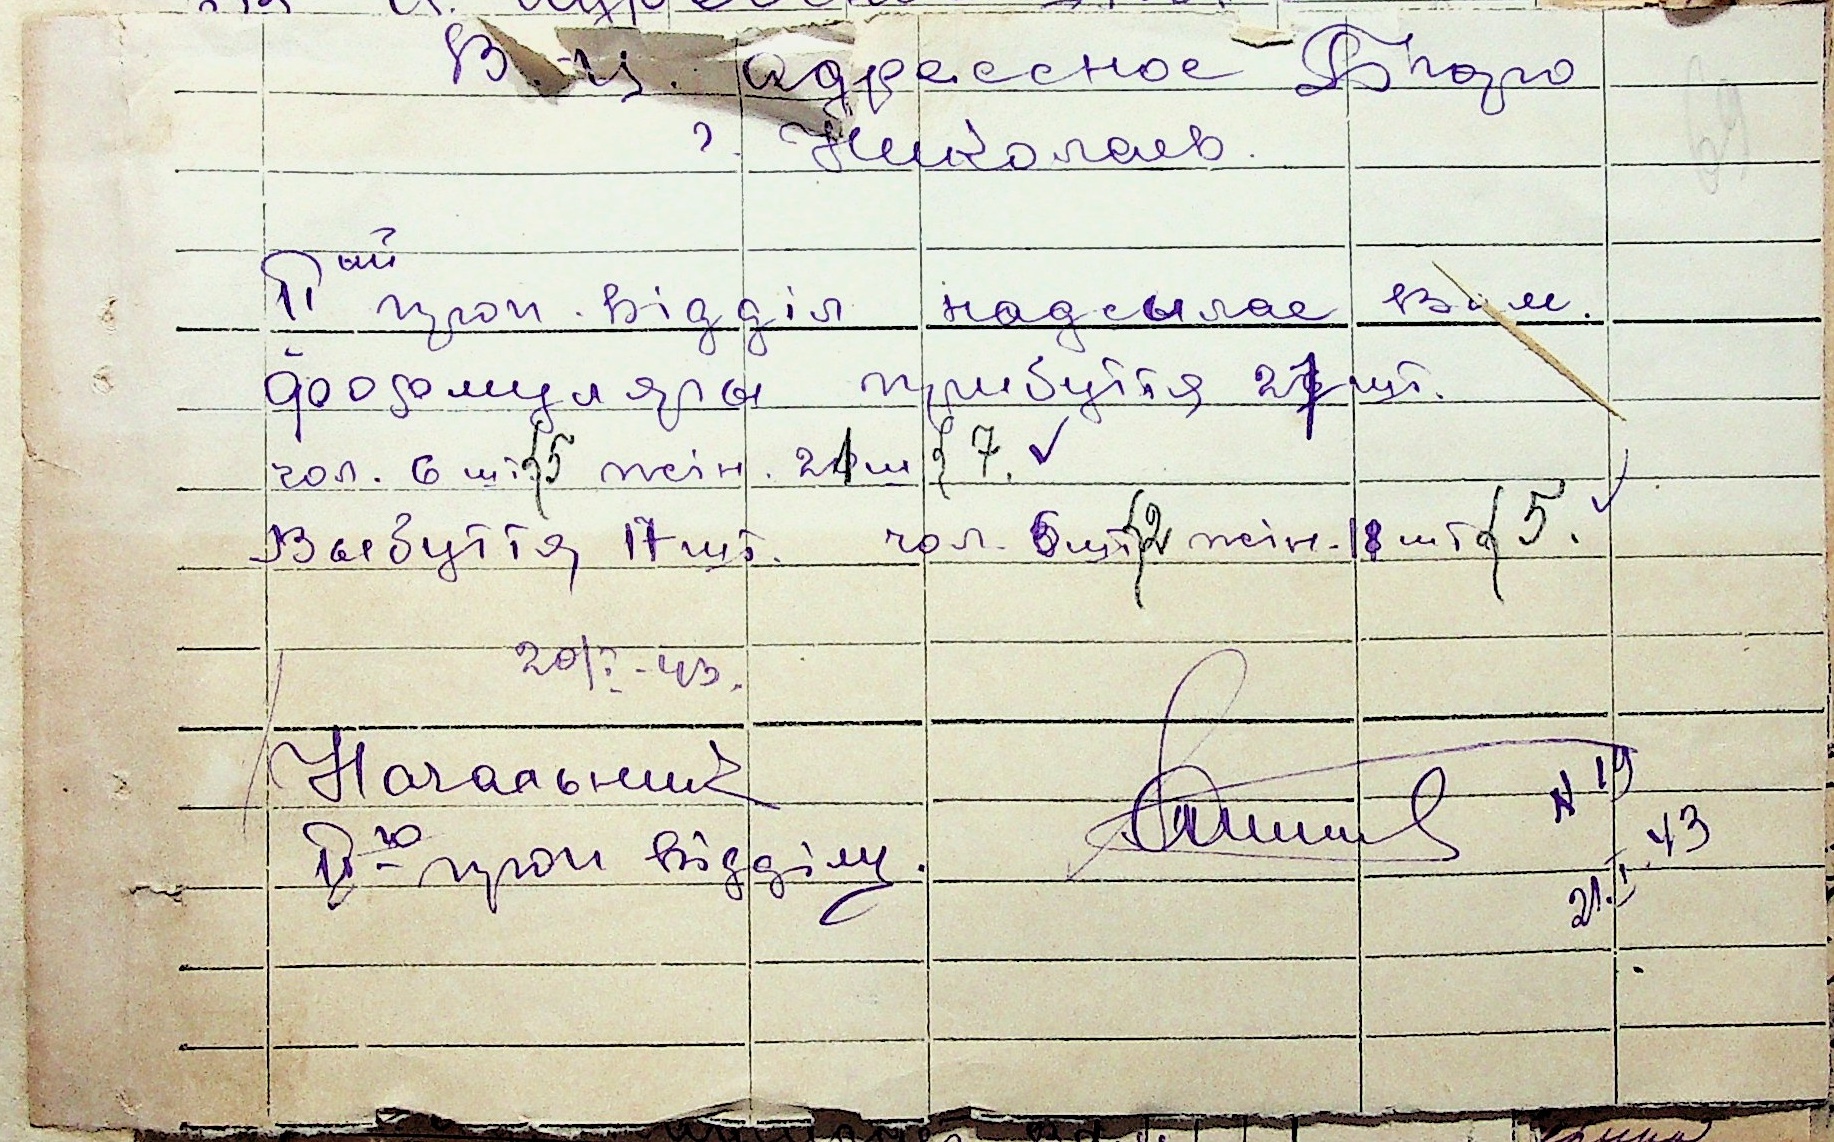 В. ц. адрессное Бюро
г. Николаев.
69
IIий проп. відділ надсылае Вам.
формуляры прибуття 27 шт.
чол. 6 шт {5 жін. 21 ш {7. ✓
Выбуття 17 шт. чол. 6 шт {2 жін. 18 шт {5. ✓
20/I-43.
Начальник
IIго проп відділу.
N 19
21.I.43